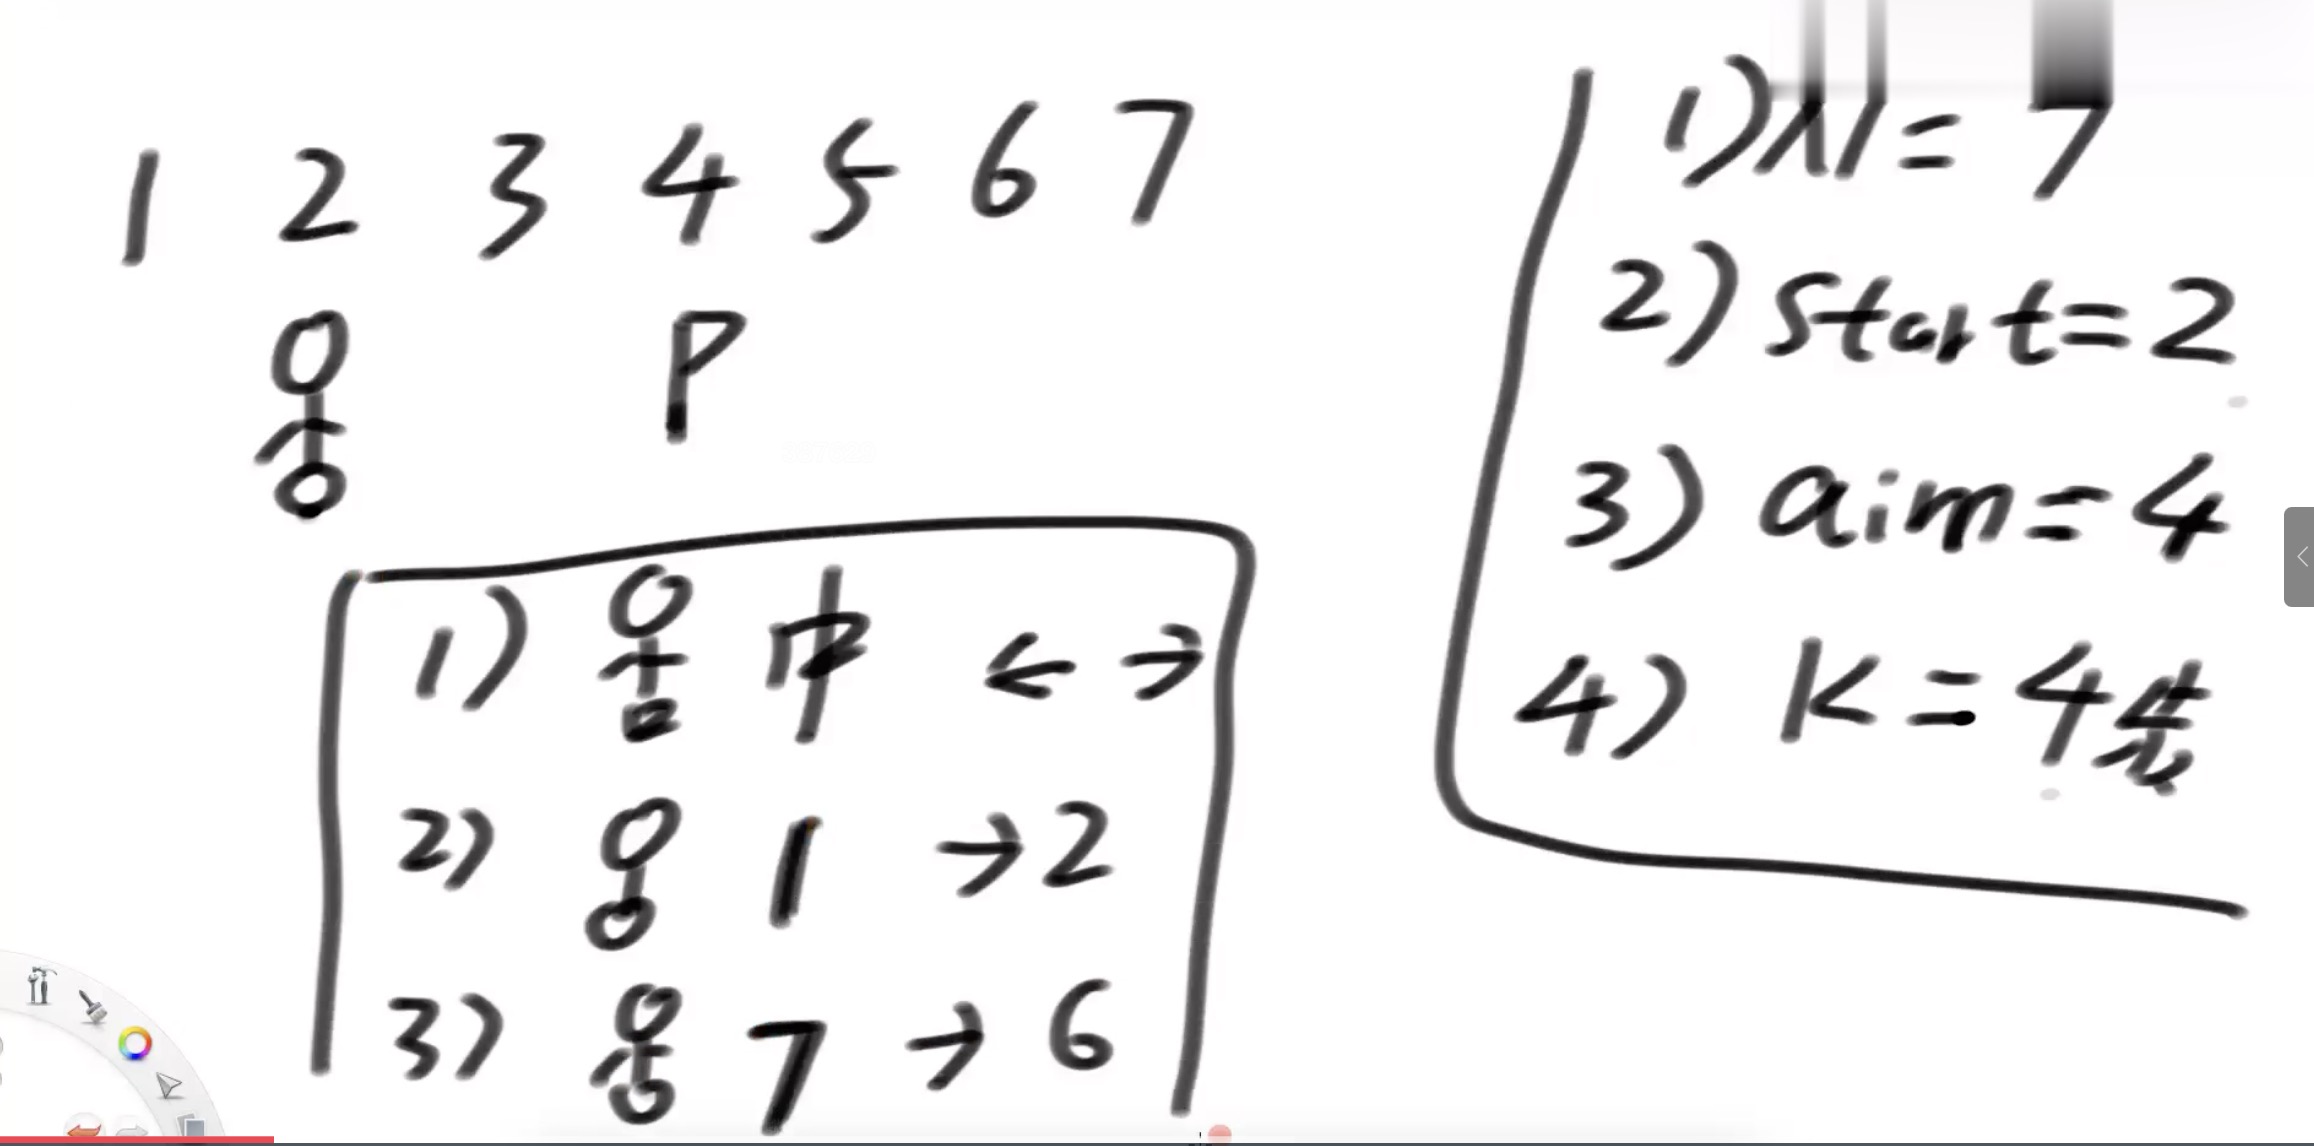 1 2 3 4 5 6 7
P
1) 中 ← →
2) 1 → 2
3) 7 → 6
1) N = 7
2) Start = 2
3) aim = 4
4) K = 4步